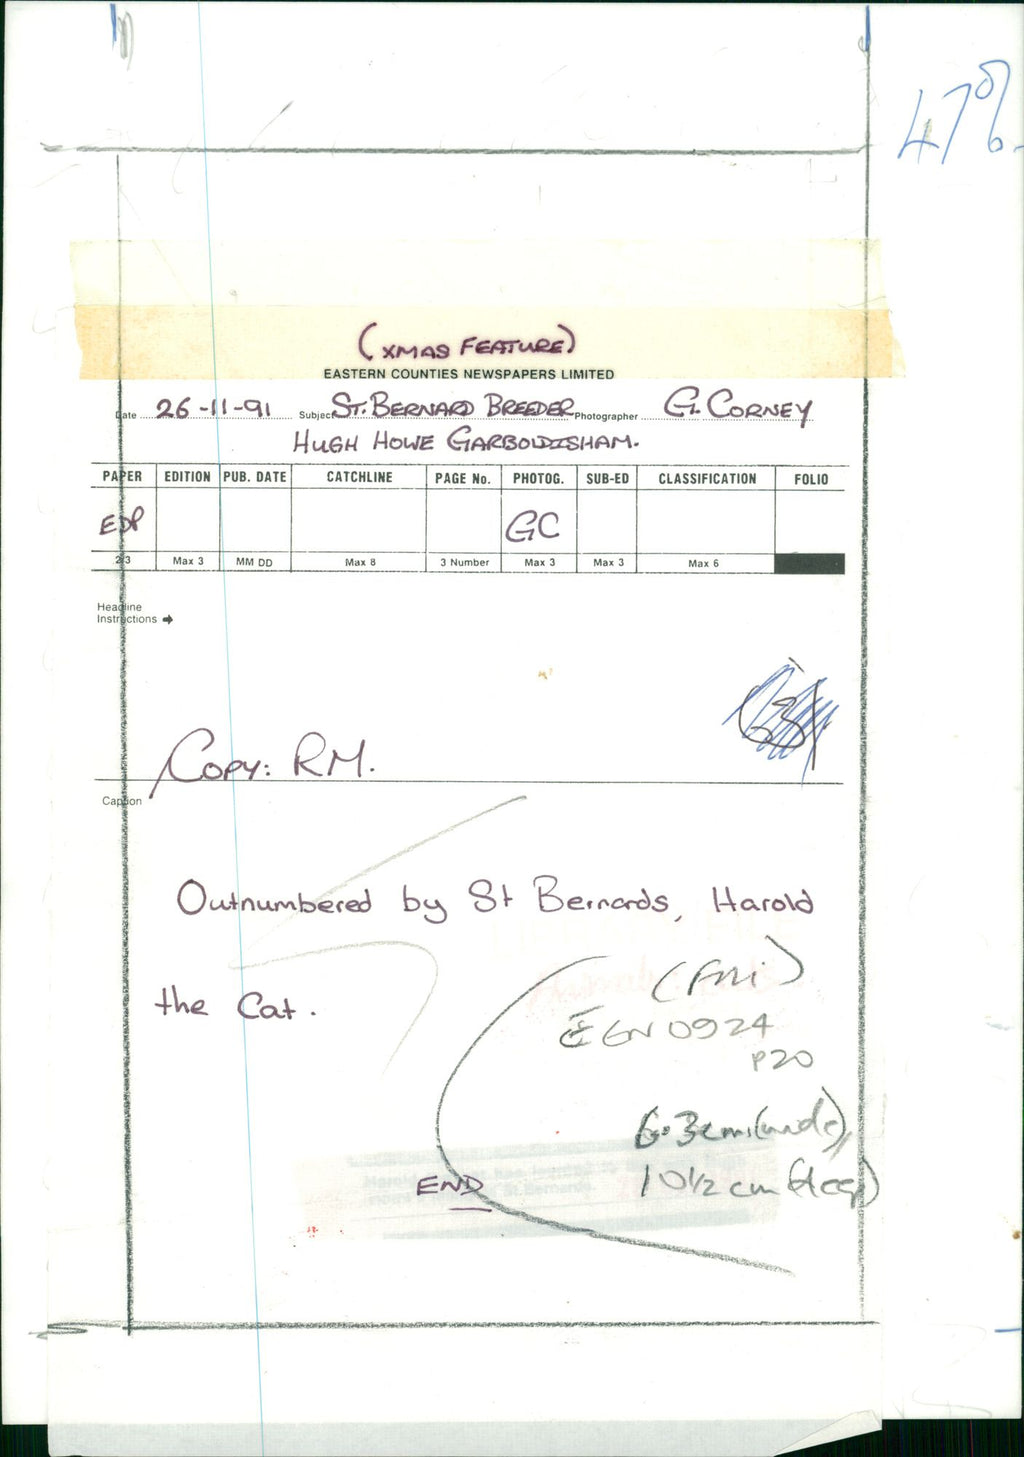 47%
(XMAS FEATURE)
EASTERN COUNTIES NEWSPAPERS LIMITED
Date 26-11-91 Subject ST. BERNARD BREEDER Photographer G. CORNEY
HUGH HOWE GARBOLDISHAM.
PAPER EDITION PUB. DATE CATCHLINE PAGE No. PHOTOG. SUB-ED CLASSIFICATION FOLIO
EDP GC
2/3 Max 3 MM DD Max 8 3 Number Max 3 Max 3 Max 6
Headline
Instructions
COPY: RM.
Caption
Outnumbered by St Bernards, Harold
the Cat.
(Fri)
EGN 0924
P20
6.3cm (wide)
10½ cm (deep)
END